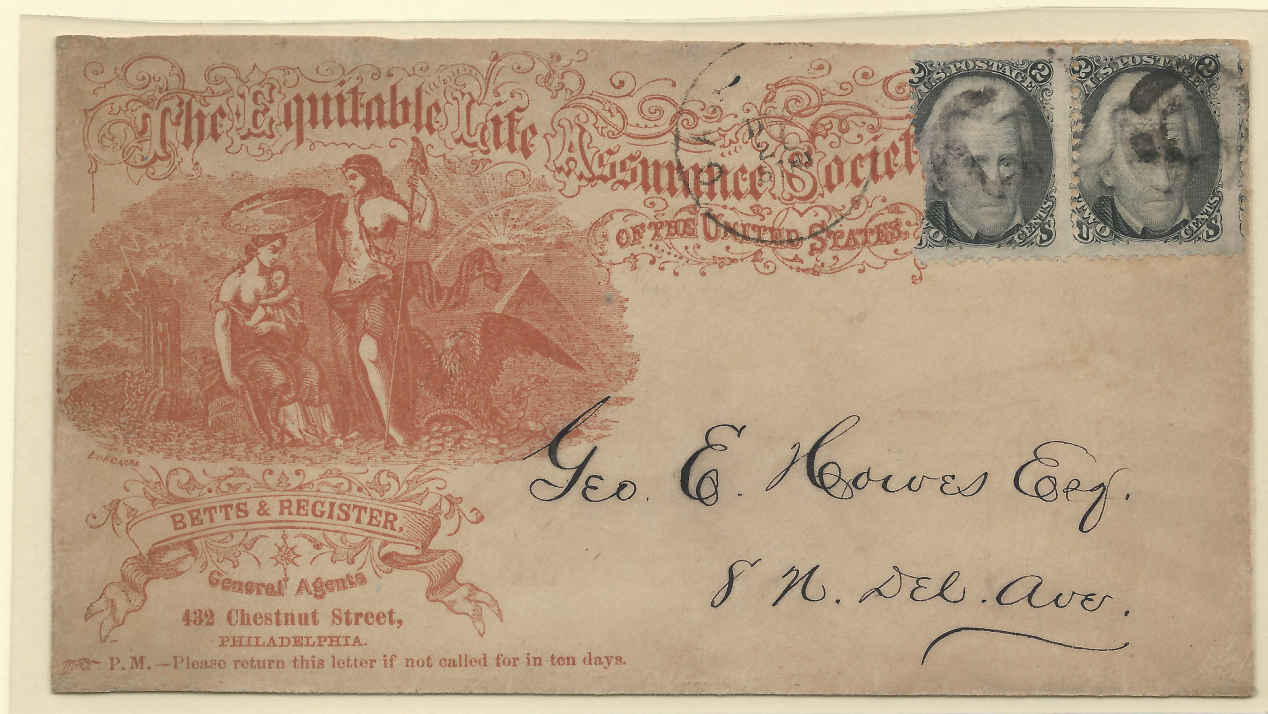 The Equitable Life Assurance Societ
OF THE UNITED STATES.
U.S. POSTAGE
2 2
TWO CENTS
U.S. POSTAGE
2 2
TWO CENTS
LONGACRE
BETTS & REGISTER,
General Agents
432 Chestnut Street,
PHILADELPHIA.
P.M.—Please return this letter if not called for in ten days.
Geo. E. Howes Esq.
8 N. Del. Ave.